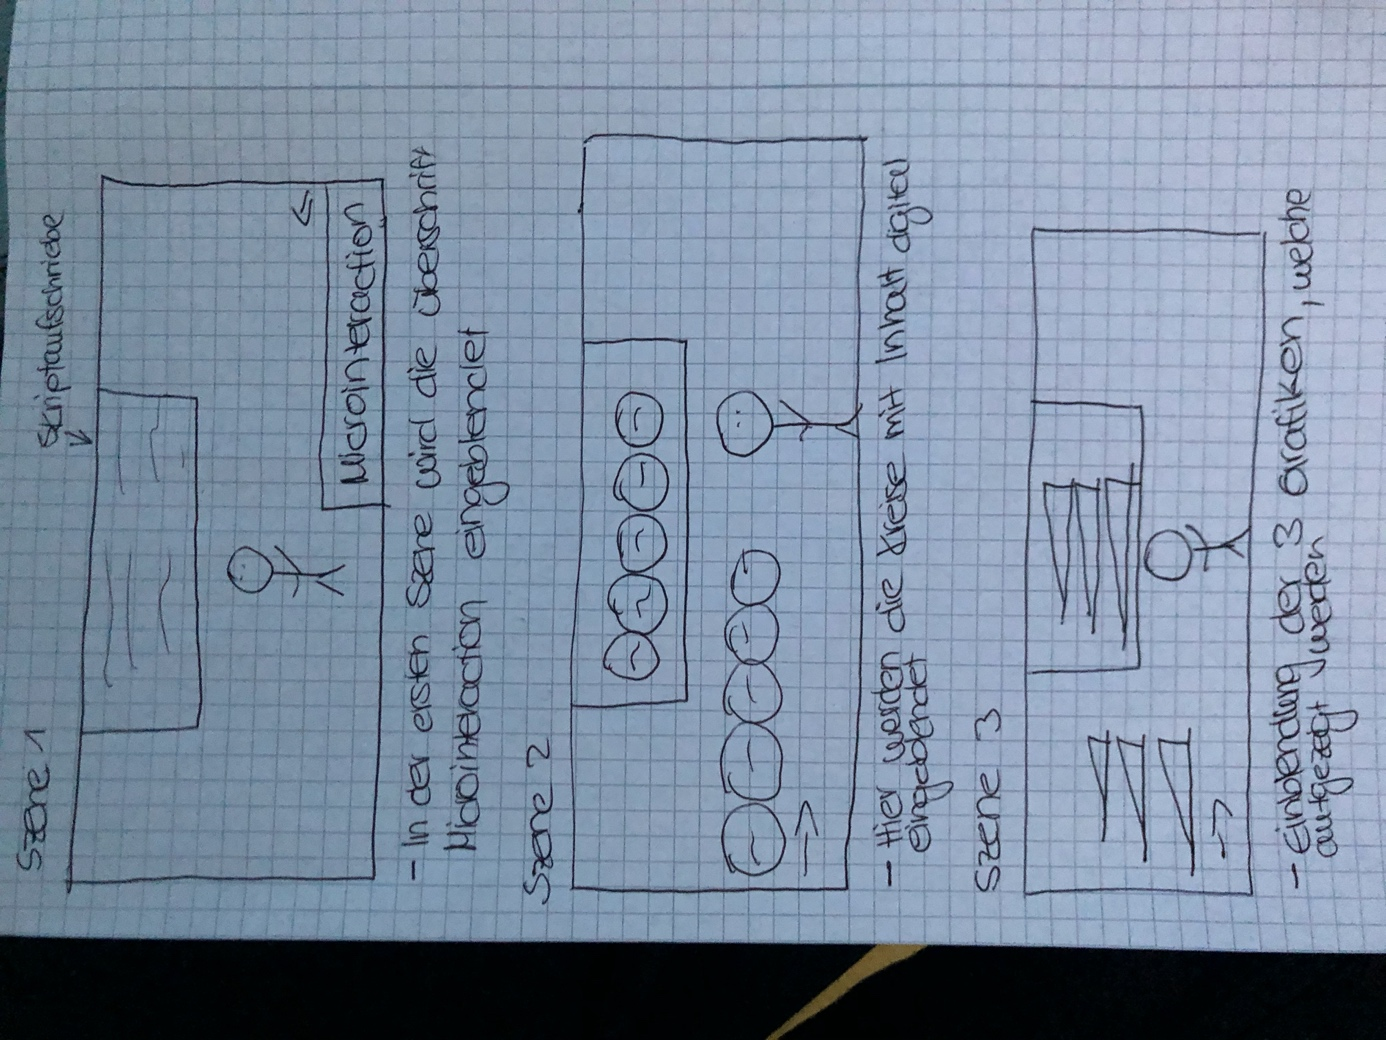 Szene 1
Skriptaufschriebe
Microinteraction
- In der ersten Szene wird die überschrift
Microinteraction eingeblendet
Szene 2
- Hier werden die Kreise mit Inhalt digital
eingeblendet
Szene 3
- Einblendung der 3 Grafiken, welche
aufgezeigt werden